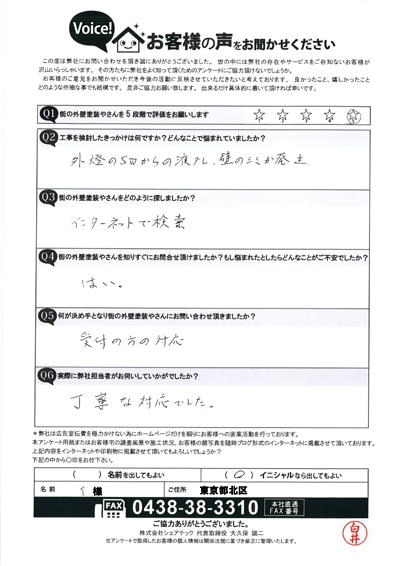 Voice!
お客様の声をお聞かせください
この度は弊社にお問い合わせを頂き誠にありがとうございました。世の中には弊社の存在やサービスをご存知ないお客様が
沢山いらっしゃいます。その方たちに弊社をよく知って頂くためのアンケートにご協力頂けないでしょうか。
お客様のご意見をお聞かせいただき今後の活動に反映させていただきたいと考えております。良かったこと、嬉しかったこと
どのような些細な事でも結構です。是非ご協力お願い致します。出来るだけ具体的に書いて頂ければ幸いです。
Q1 街の外壁塗装やさんを5段階で評価をお願いします
☆ ☆ ☆ ☆ ☆
Q2 工事を検討したきっかけは何ですか?どんなことで悩まれていましたか?
からの液だし、壁のシミが発生
Q3 街の外壁塗装やさんをどのように探しましたか?
インターネットで検索
Q4 街の外壁塗装やさんを知りすぐにお問合せ頂けましたか?もし悩まれたとしたらどんなことがご不安でしたか?
はい。
Q5 何が決め手となり街の外壁塗装やさんにお問い合わせ頂きましたか?
受付の方の対応
Q6 実際に弊社担当者がお伺いしていかがでしたか?
丁寧な対応でした。
*弊社は広告宣伝費を極力かけない為にホームページだけを頼りにお客様への営業活動を行っております。
本アンケート用紙またはお客様宅の調査風景や施工状況、お客様の顔写真を随時ブログ形式のインターネットに掲載させて頂いております。
上記内容をインターネットや印刷物に掲載させて頂いてもよろしいでしょうか?
下記の中から〇印をお付下さい。
( ) 名前を出してもよい ( 〇 ) イニシャルなら出してもよい
名前 I 様 ご住所 東京都北区
FAX 0438-38-3310 本社直通 FAX番号
ご協力ありがとうございました。
株式会社シェアテック 代表取締役 大久保 誠二
※アンケートで取得したお客様の個人情報は関係法規に基づき厳正に管理いたします。
白井